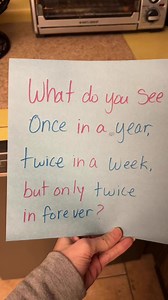 What do you see
Once in a year,
twice in a week,
but only twice
in forever?